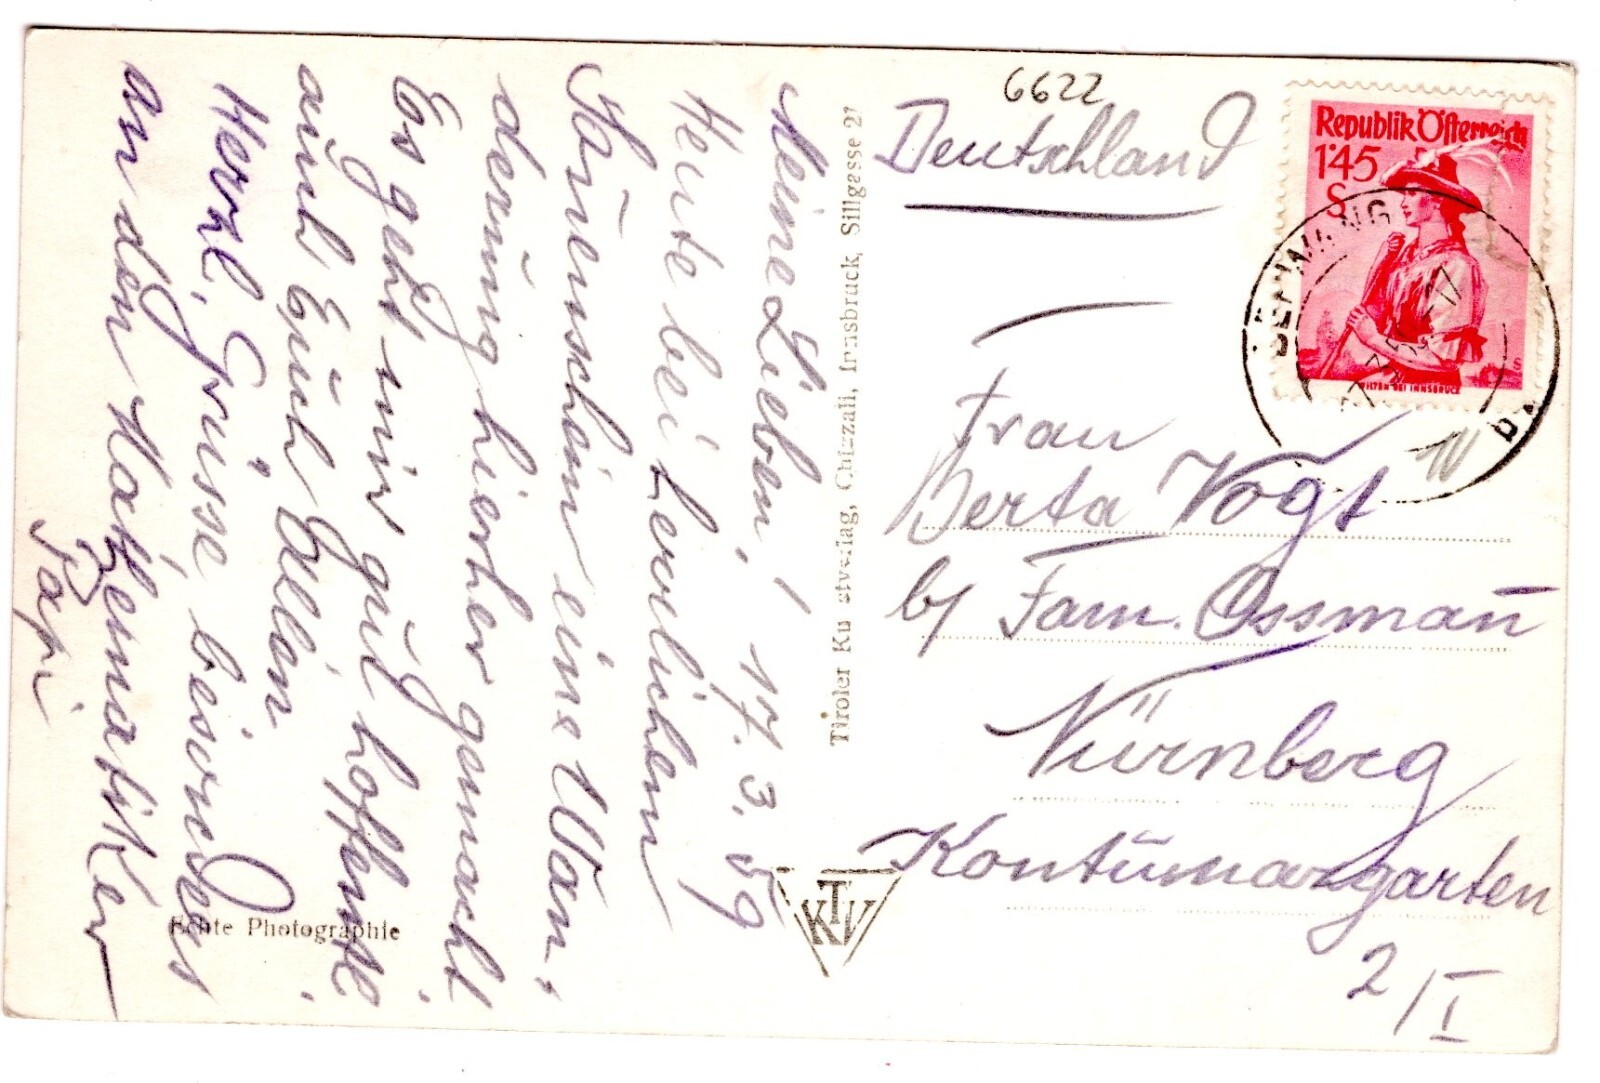 Meine Lieben! 17. 3. 59
Heute bei herrlichem
Sonnenschein eine Wan-
derung hierher gemacht.
Es geht mir gut hoffentl.
auch Euch Allen.
Herzl. Grüsse besonders
an den Mathematiker
Papi
Echte Photographie
Tiroler Kunstverlag, Chizzali, Innsbruck, Sillgasse 21
KTV
6622
Deutschland
Republik Österreich
1'45
S
WILTEN BEI INNSBRUCK
BERWANG
Frau
Berta Vogt
b/ Fam. Ossmañ
Nürnberg
Kontumazgarten
2/I